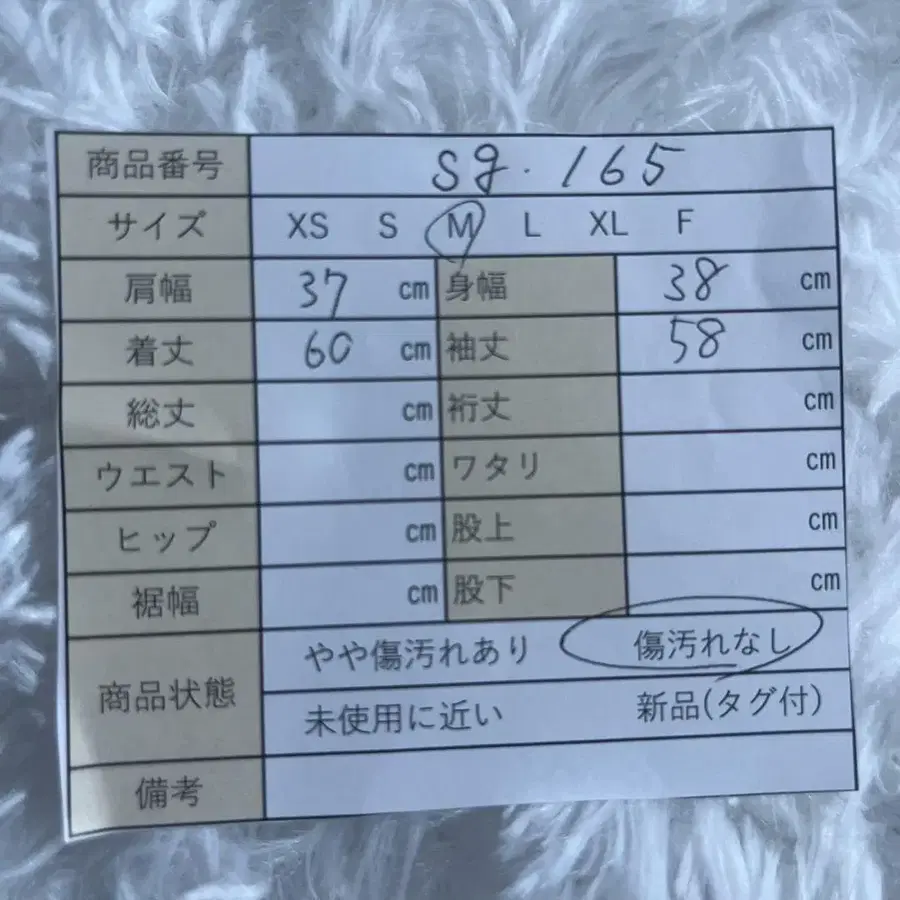 商品番号 sg. 165
サイズ XS S M L XL F
肩幅 37 cm 身幅 38 cm
着丈 60 cm 袖丈 58 cm
総丈 cm 裄丈 cm
ウエスト cm ワタリ cm
ヒップ cm 股上 cm
裾幅 cm 股下 cm
商品状態 やや傷汚れあり 傷汚れなし
未使用に近い 新品(タグ付)
備考